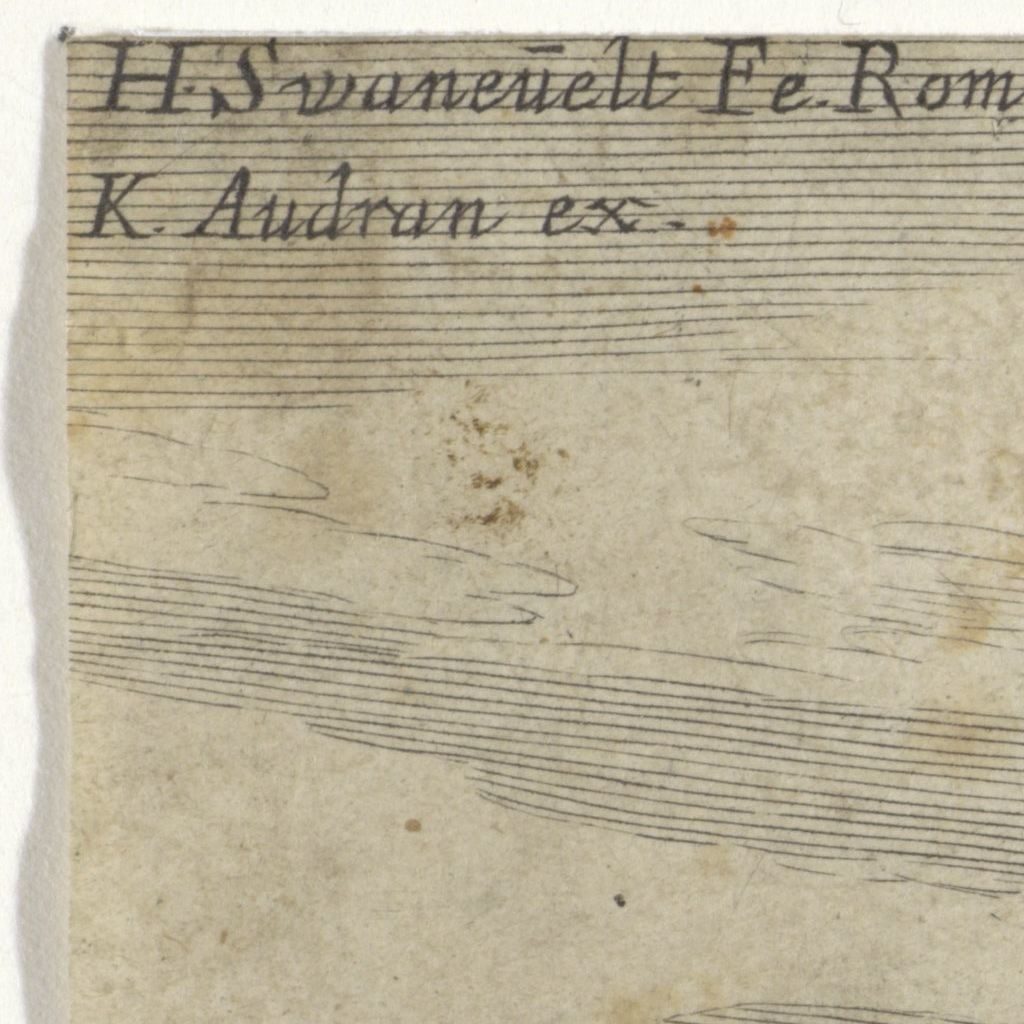 H. Swaneūelt Fe. Rom
K. Audran ex.